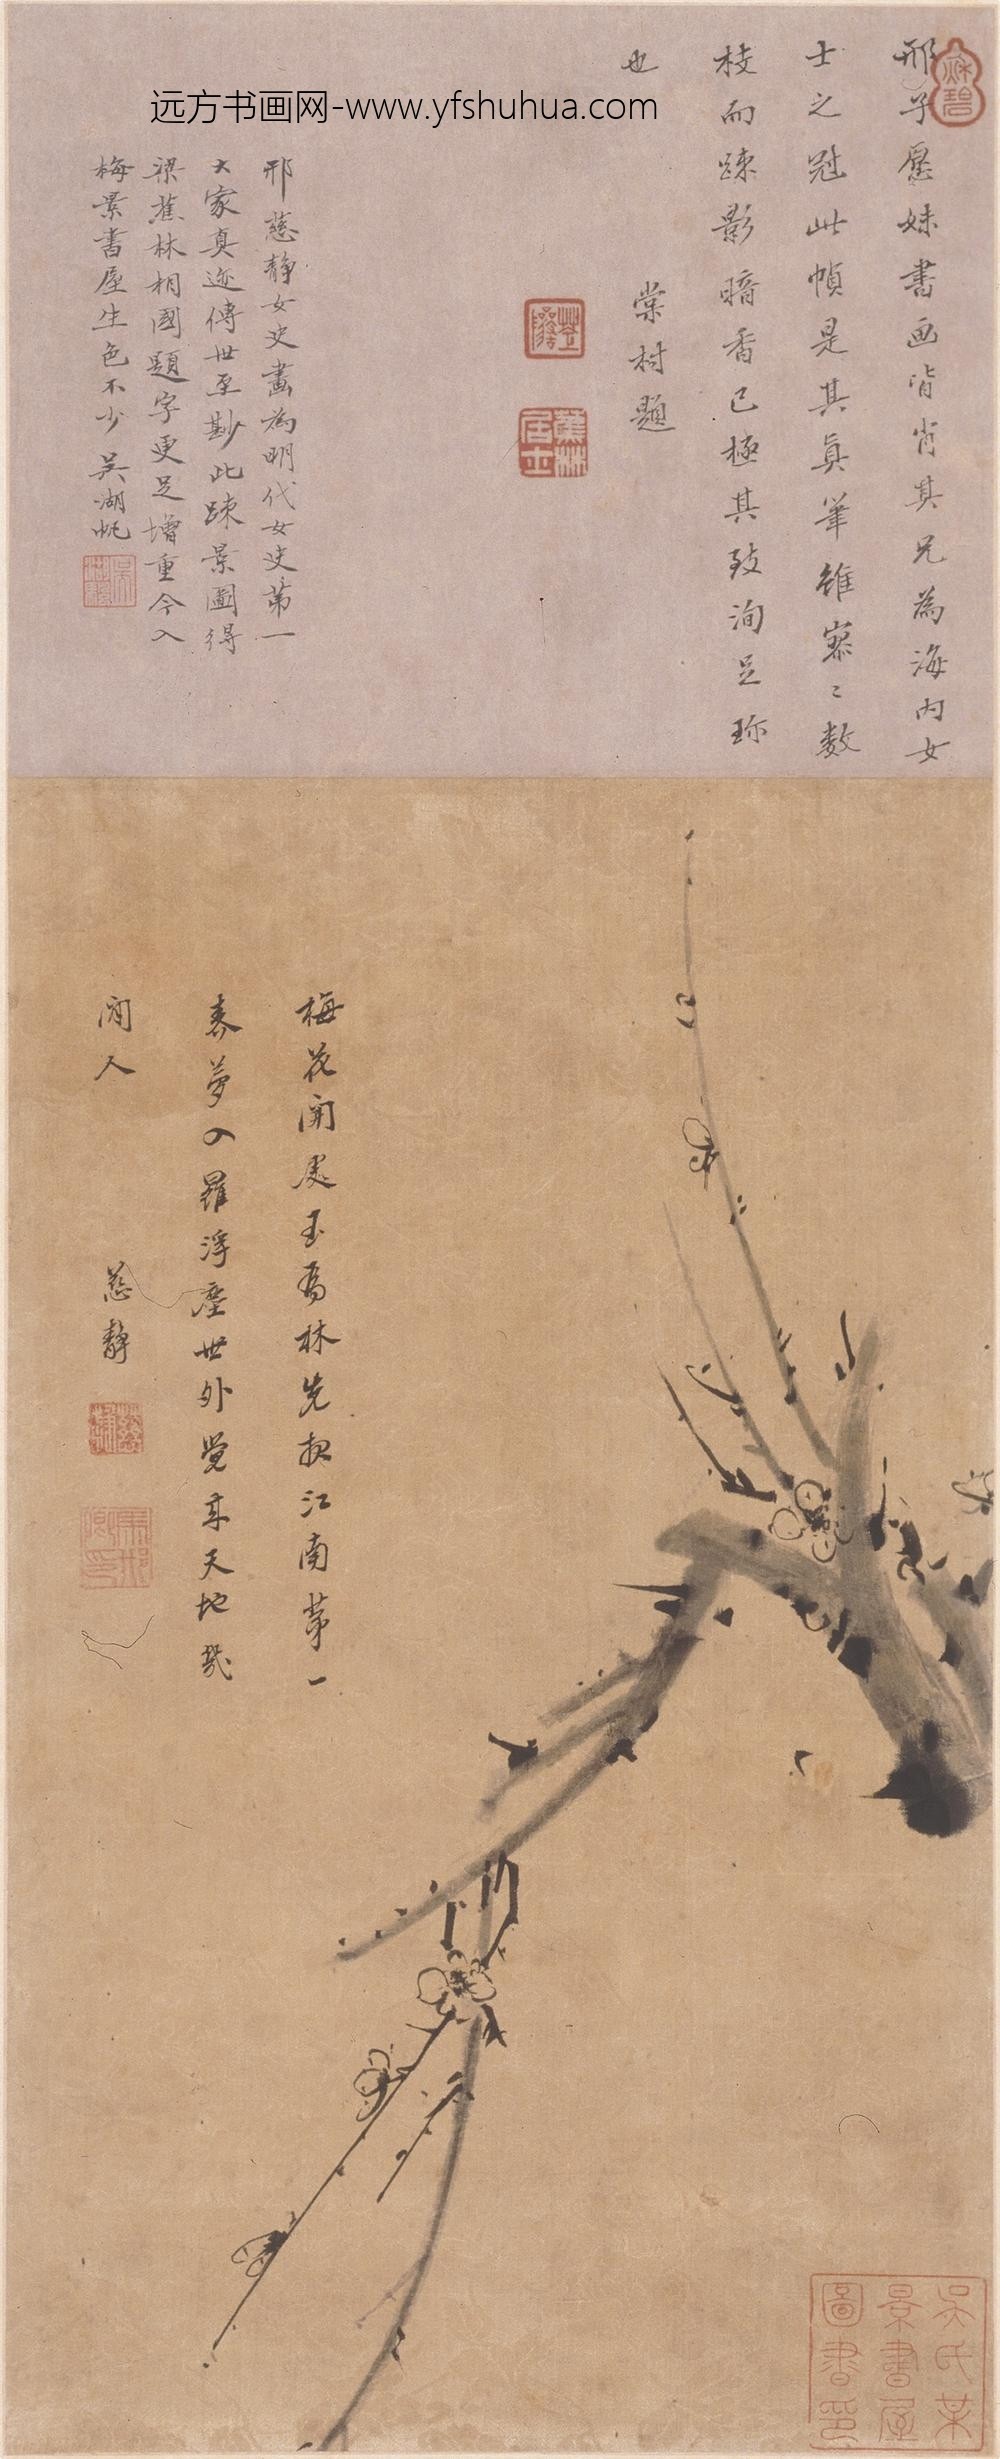 远方书画网-www.yfshuhua.com
邢子愿妹書画皆肖其兄為海内女
士之冠此幀是其真筆雖寥〻数
枝而踈影暗香已極其致洵足珎
也
棠村題
蕉林居士
邢慈静女史畫為明代女史第一
大家真迹傳世至尠此踈景圖得
梁蕉林相國題字更足增重今入
梅景書屋生色不少吴湖帆
梅花開處玉為林先報江南第一
春夢入羅浮塵世外覺來天地幾
閒人
慈静
吴氏某
景書屋
圖書印